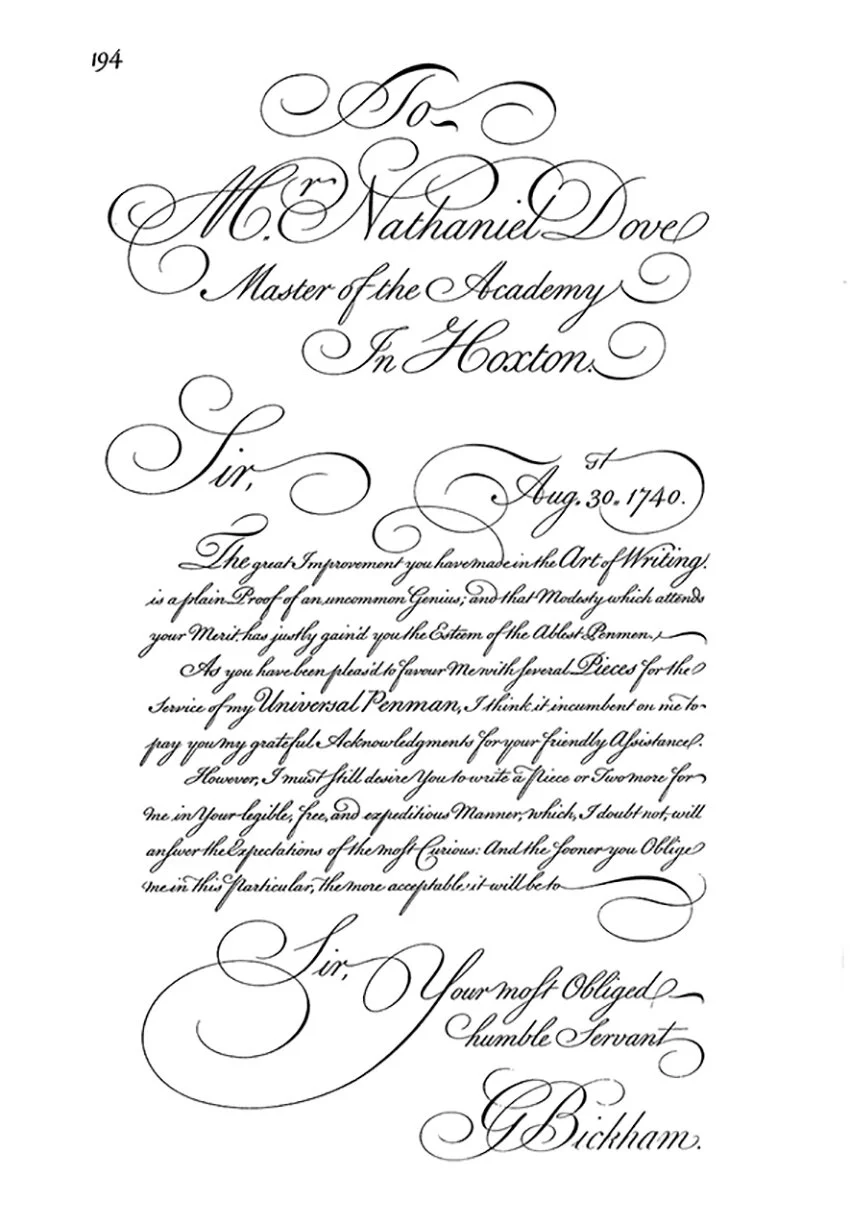 194
To
Mr. Nathaniel Dove
Master of the Academy
In Hoxton.
Sir,
Augst. 30. 1740.
The great Improvement you have made in the Art of Writing,
is a plain Proof of an uncommon Genius; and that Modesty which attends
your Merit, has justly gain'd you the Esteem of the Ablest Penmen.
As you have been pleas'd to favour Me with ſeveral Pieces for the
Service of my Universal Penman, I think it incumbent on me to
pay you my grateful Acknowledgments for your friendly Aſsistance.
However, I must ſtill desire You to write a Piece or Two more for
me in Your legible, free, and expeditious Manner, which, I doubt not, will
anſwer the Expectations of the moſt Curious: And the ſooner you Oblige
me in this Particular, the more acceptable it will be to
Sir,
Your moſt Obliged
humble Servant
G Bickham.